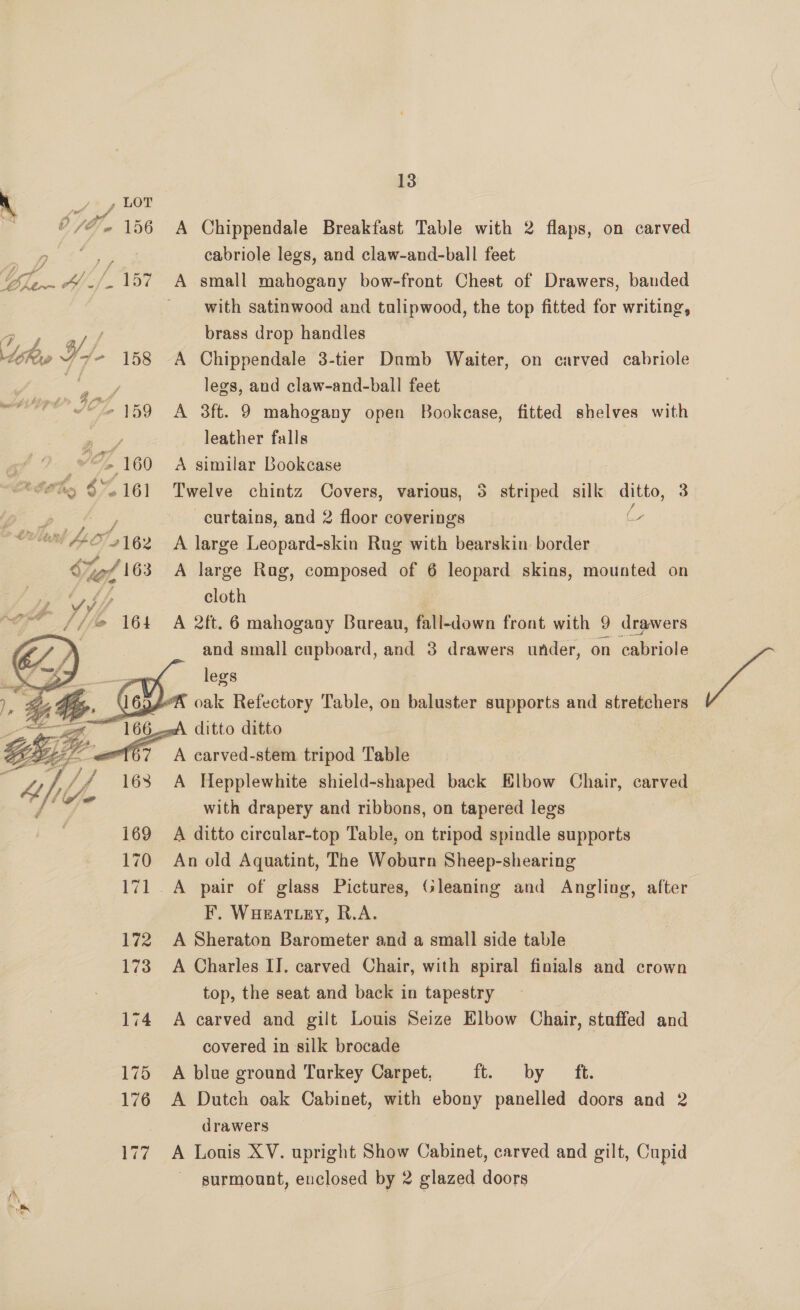 13
LOT
156 A Chippendale Breakfast Table with 2 flaps, on carved
cabriole legs, and claw-and-ball feet
157 A small mahogany bow-front Chest of Drawers, banded
with satinwood and tulipwood, the top fitted for writing,
brass drop handles
158 A Chippendale 3-tier Dumb Waiter, on carved cabriole
legs, and claw-and-ball feet
159 A 3ft. 9 mahogany open Bookcase, fitted shelves with
leather falls
160 A similar Bookcase
161 Twelve chintz Covers, various, 3 striped silk ditto, 3
curtains, and 2 floor coverings
162 A large Leopard-skin Rug with bearskin border
163 A large Rug, composed of 6 leopard skins, mounted on
cloth
164 A 2ft. 6 mahogany Bureau, fall-down front with 9 drawers
and small cupboard, and 3 drawers under, on cabriole
legs
165 A oak Refectory Table, on baluster supports and stretchers
166 A ditto ditto
167 A carved-stem tripod Table
168 A Hepplewhite shield-shaped back Elbow Chair, carved
with drapery and ribbons, on tapered legs
169 A ditto circular-top Table, on tripod spindle supports
170 An old Aquatint, The Woburn Sheep-shearing
171 A pair of glass Pictures, Gleaning and Angling, after
F. WHEATLEY, R.A.
172 A Sheraton Barometer and a small side table
173 A Charles II. carved Chair, with spiral finials and crown
top, the seat and back in tapestry
174 A carved and gilt Louis Seize Elbow Chair, stuffed and
covered in silk brocade
175 A blue ground Turkey Carpet, ft. by ft.
176 A Dutch oak Cabinet, with ebony panelled doors and 2
drawers
177 A Louis XV. upright Show Cabinet, carved and gilt, Cupid
surmount, enclosed by 2 glazed doors